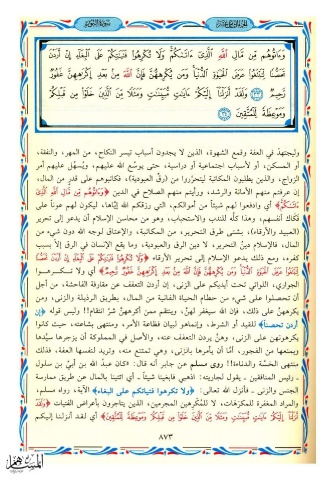 وَءَاتُوهُم مِّن مَّالِ ٱللَّهِ ٱلَّذِىٓ ءَاتَىٰكُمْ ۚ وَلَا تُكْرِهُوا۟ فَتَيَٰتِكُمْ عَلَى ٱلْبِغَآءِ إِنْ أَرَدْنَ
تَحَصُّنًا لِّتَبْتَغُوا۟ عَرَضَ ٱلْحَيَوٰةِ ٱلدُّنْيَا ۚ وَمَن يُكْرِههُّنَّ فَإِنَّ ٱللَّهَ مِنۢ بَعْدِ إِكْرَٰهِهِنَّ غَفُورٌ
رَّحِيمٌ ﴿٣٣﴾ وَلَقَدْ أَنزَلْنَآ إِلَيْكُمْ ءَايَٰتٍ مُّبَيِّنَٰتٍ وَمَثَلًا مِّنَ ٱلَّذِينَ خَلَوْا۟ مِن قَبْلِكُمْ
وَمَوْعِظَةً لِّلْمُتَّقِينَ ﴿٣٤﴾
وليجتهدْ في العفة وقمع الشهوة، الذين لا يجدون أسباب تيسر النكاح، من المهر، والنفقة،
أو المسكن، أو لأسباب اجتماعية أو دراسية، حتى يوسّع الله عليهم، ويُسهّل عليهم أمر
الزواج، والذين يطلبون المكاتبة ليتحرَّروا من (رقّ العبودية)، فكاتبوهم على قدرٍ من المال،
إن عرفتم منهم الأمانة والرشد، ورأيتم منهم الصلاح في الدين ﴿وَءَاتُوهُم مِّن مَّالِ ٱللَّهِ ٱلَّذِىٓ
ءَاتَىٰكُمْ﴾ أي وادفعوا لهم شيئاً من أموالكم، التي رزقكم الله إيّاها، ليكون لهم عوناً على
فكاك أنفسهم، وهذا كلُّه للندب والاستحباب، وهو من محاسن الإسلام أن يدعو إلى تحرير
(العبيد والأرقاء)، بشتى طرق التحرير، من المكاتبة، والإعتاق لوجه الله دون شيء من
المال، فالإسلام دينُ التحرير، لا دين الرق والعبودية، وما يقع الإنسان في الرق إلاّ بسبب
كفره، ومع ذلك يدعو الإسلام إلى تحرير الأرقاء ﴿وَلَا تُكْرِهُوا۟ فَتَيَٰتِكُمْ عَلَى ٱلْبِغَآءِ إِنْ أَرَدْنَ تَحَصُّنًا
لِّتَبْتَغُوا۟ عَرَضَ ٱلْحَيَوٰةِ ٱلدُّنْيَا وَمَن يُكْرِههُّنَّ فَإِنَّ ٱللَّهَ مِنۢ بَعْدِ إِكْرَٰهِهِنَّ غَفُورٌ رَّحِيمٌ﴾ أي ولا تكرهوا
الجواري، اللواتي تحت أيديكم على الزنى، إن أردن التعفف عن مقارفة الفاحشة، من أجل
أن تحصلوا على شيء من حطام الحياة الفانية من المال، بطريق الرذيلة والزنى، ومن
يكرههنَّ على ذلك، فإن الله سيغفر لهنَّ، وينتقم ممن أكرههنَّ شرَّ انتقام!! وليس قوله ﴿إن
أردن تحصناً﴾ للقيد أو الشرط، وإنما هو لبيان فظاعة الأمر، ومنتهى بشاعته، حيث كانوا
يكرهونهن على الزنى، وهنَّ يردن التعفف عنه، والأصل في المملوكة أن يزجرها سيّدها
ويمنعها من الفجور، أمّا أن يأمرها بالزنى، وهي تمتنع منه، وتريد لنفسها العفة، فذلك
منتهى الخسّة والدناءة!! روى مسلم عن جابر أنه قال: «كان عبدُ الله بن أبيّ بن سلول
ـ رئيس المنافقين ـ يقول لجاريته: اذهبي فابغينا شيئاً ـ أي ائتينا بالمال عن طريق ممارسة
الجنس والزنى ـ فأنزل الله تعالى: ﴿ولا تكرهوا فتياتكم على البغاء﴾ الآية، رواه مسلم،
والمراد المغفرة للمكرَهات، لا للمُكْرِهين المجرمين، الذين يتاجرون بأعراض الفتيات ﴿وَلَقَدْ
أَنزَلْنَآ إِلَيْكُمْ ءَايَٰتٍ مُّبَيِّنَٰتٍ وَمَثَلًا مِّنَ ٱلَّذِينَ خَلَوْا۟ مِن قَبْلِكُمْ وَمَوْعِظَةً لِّلْمُتَّقِينَ﴾ أي لقد أنزلنا إليكم
٨٧٣